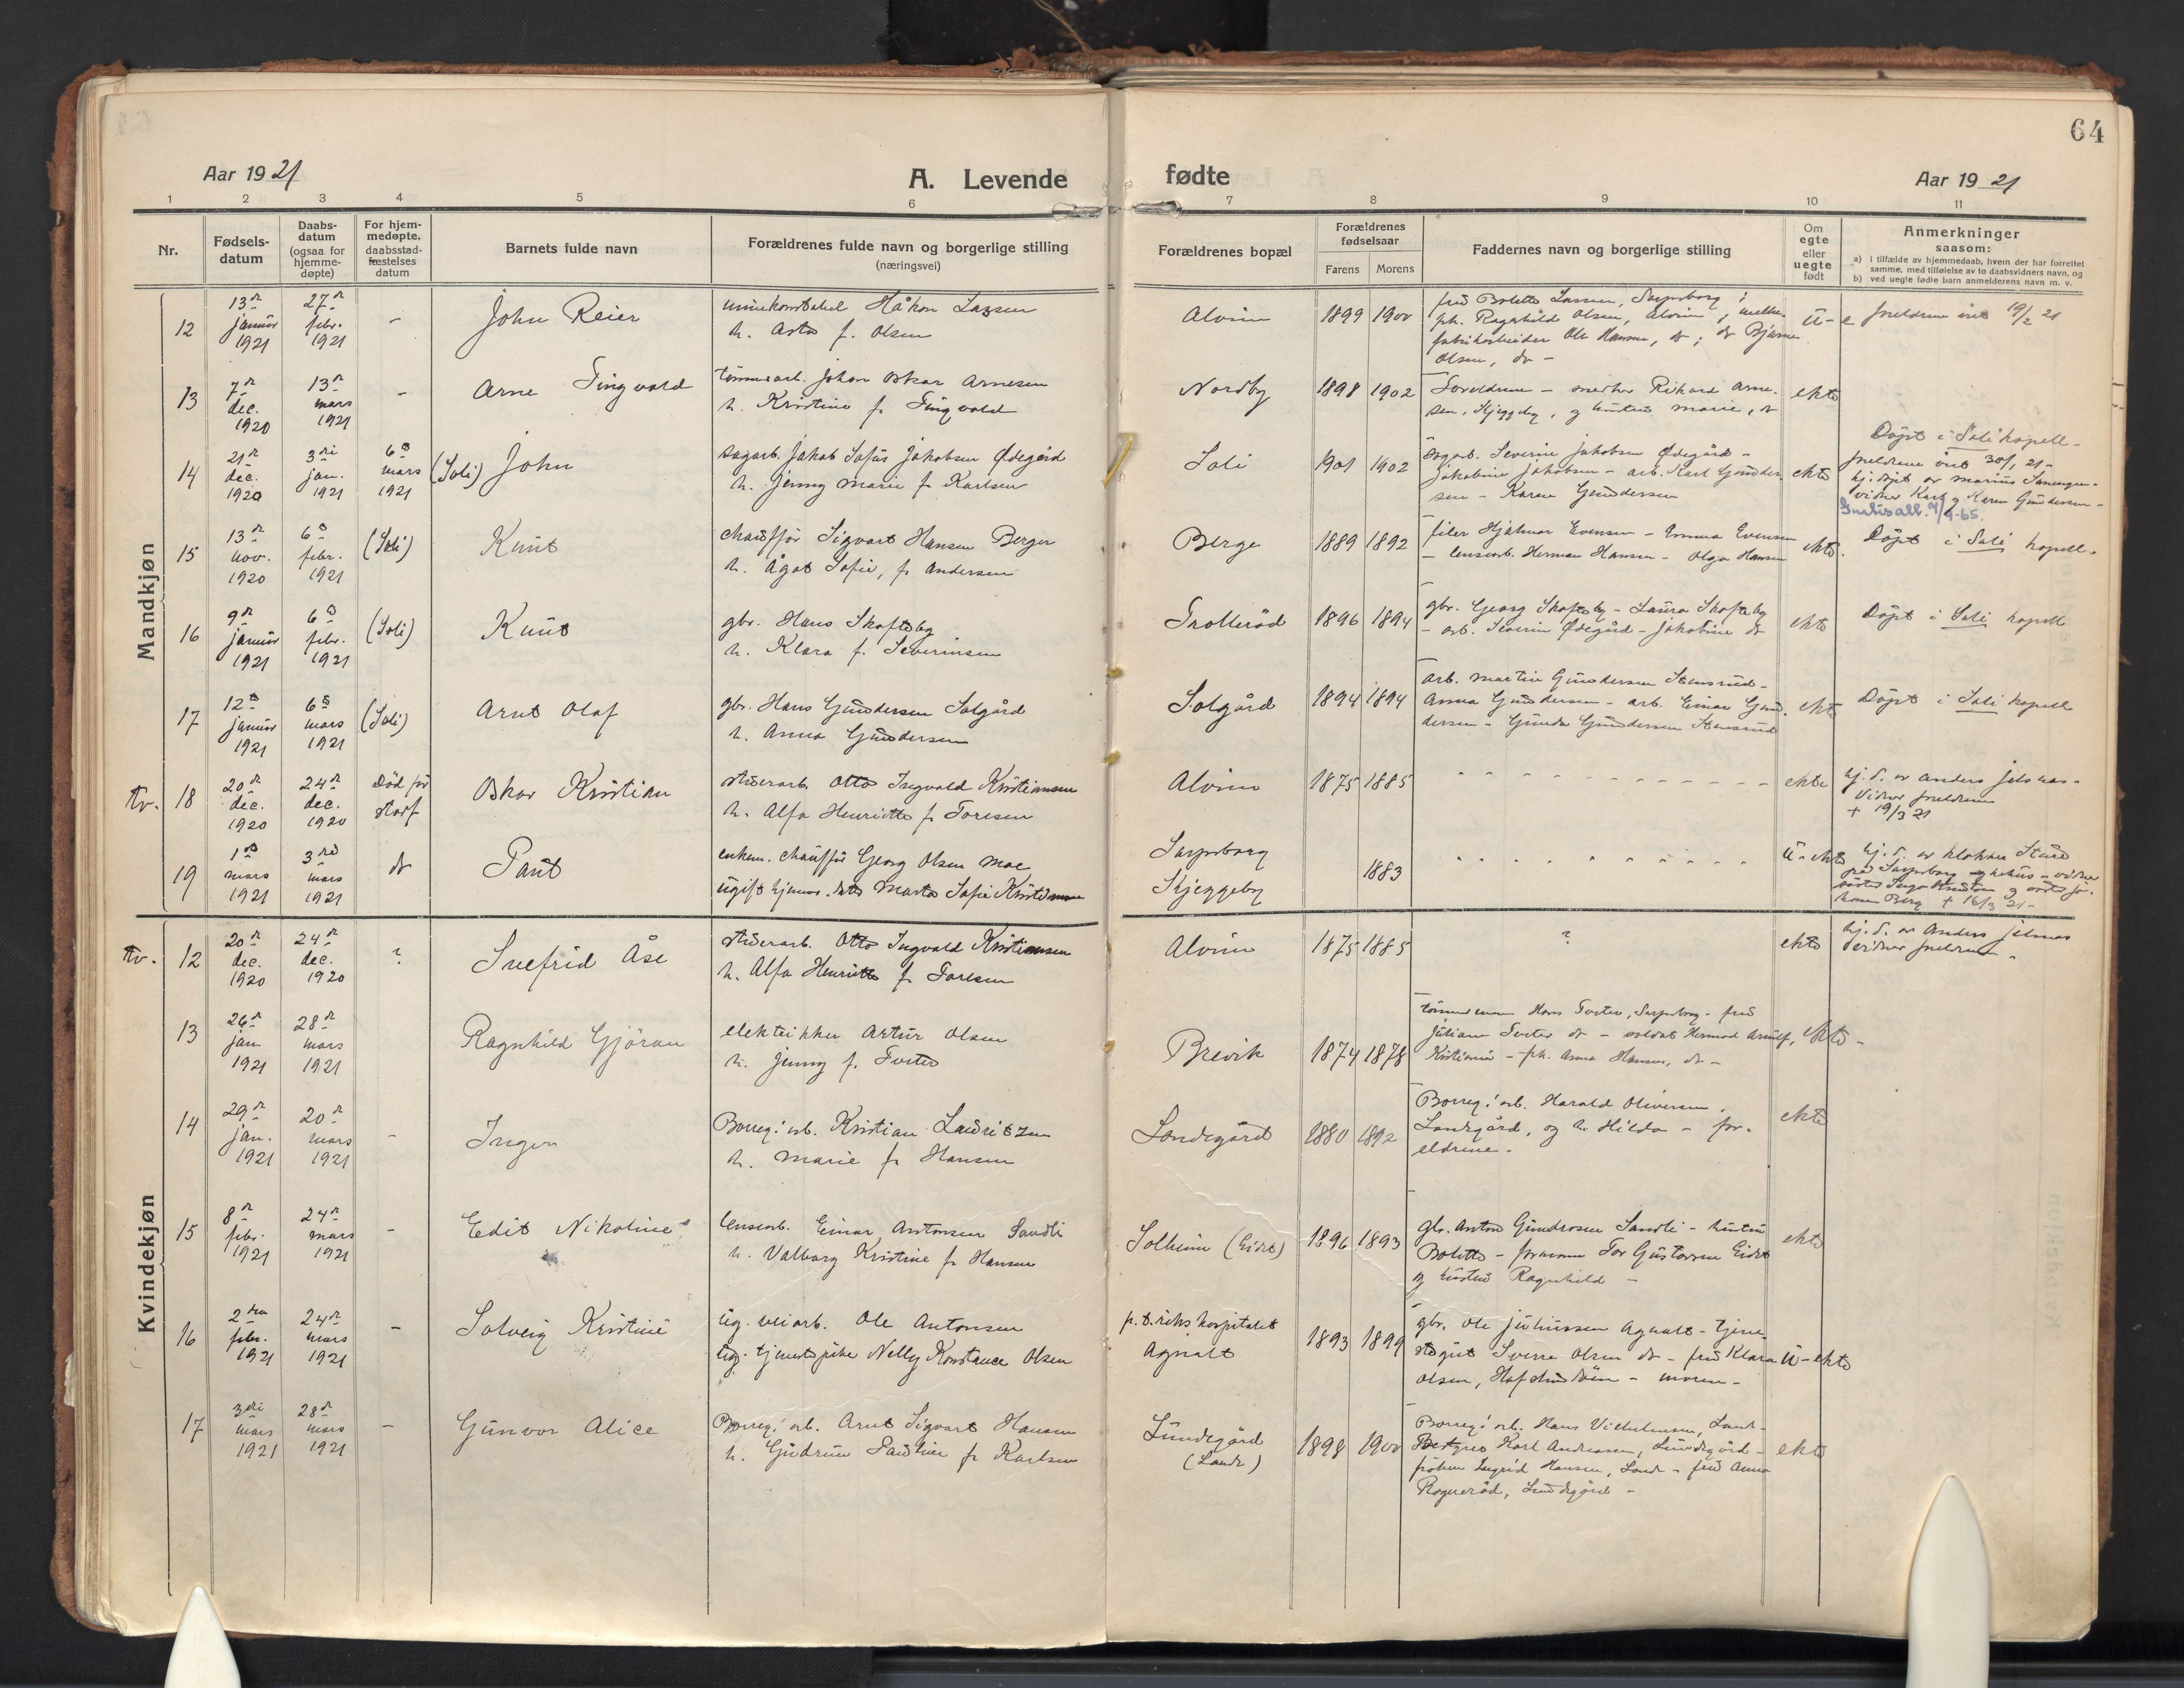 64
Aar 1921
A. Levende
fødte
Aar 1921
1 2 3 4 5 6 7 8 9 10 11
Nr.
Fødsels-
datum
Daabs-
datum
(ogsaa for
hjemme-
døpte)
For hjem-
medøpte,
daabsstad-
fæstelses
datum
Barnets fulde navn
Forældrenes fulde navn og borgerlige stilling
(næringsvei)
Forældrenes bopæl
Forældrenes
fødselsaar
Farens Morens
Faddernes navn og borgerlige stilling
Om
egte
eller
uegte
født
Anmerkninger
saasom:
a) i tilfælde av hjemmedaab, hvem der har forrettet
samme, med tilføielse av to daabsvidners navn, og
b) ved uegte fødte barn anmelderens navn m. v.
Mandkjøn
12
13de
januar
1921
27de
febr.
1921
-
John Reier
Håkon Lassen
h. Asta f. Olsen
Alvim
1899 1900
fru Bolette Lassen, Sarpsborg;
pk. Ragnhild Olsen, Alvim;
fabrikarbeider Ole Hansen, do; do Bjarne
Olsen, do -
u-e
foreldrene 19/2 21
13
7de
dec.
1920
13de
mars
1921
-
Arne Tingvald
tømmerarb. Johan Oskar Arnesen
h. Kristine f. Tingvald
Nordby
1898 1902
Foreldrene - Rikard Arne-
sen, Skjeggeby, og hustru Marie, do
ekte
14
21de
dec.
1920
3die
jan.
1921
6te
mars
1921
(Soli) John
sagarb. Jakob Sofus Jakobsen Ødegård
h. Jenny Marie f. Karlsen
Soli
1901 1902
Severin Jakobsen Ødegård -
Jakobine Jakobsen - arb. Karl Gunder-
sen - Karen Gundersen
ekte
Døpt i Soli kapell -
foreldrene 30/1 21 -
hj. døpt av Marius
vidner Karl og Karen Gundersen -
15
13de
nov.
1920
6te
febr.
1921
(Soli)
Knut
chauffør Sigvart Hansen Berger
h. Ågot Sofie, f. Andersen
Berge
1889 1892
filer Hjalmar Evensen - Emma Evensen
- lensearb. Herman Hansen - Olga Hansen
ekte.
Døpt i Soli kapell.
16
9de
januar
1921
6te
febr.
1921
(Soli)
Knut
gbr. Hans Skofteby
h. Klara f. Severinsen
Trollerød
1896 1894
gbr. Georg Skofteby - Laura Skofteby
- arb. Severin Ødegård - Jakobine do
ekte
Døpt i Soli kapell
17
12te
januar
1921
6te
mars
1921
(Soli)
Arnt Olaf
gbr. Hans Gundersen Solgård
h. Anna Gundersen
Solgård
1894 1894
arb. Martin Gundersen Stensrud -
Anna Gundersen - arb. Einar Gun-
dersen - Gunda Gundersen Stensrud
ekte
Døpt i Soli kapell
Tv. 18
20de
dec.
1920
24de
dec.
1920
Død før
stadf
Oskar Kristian
Otto Ingvald Kristiansen
h. Alfa Henriette f. Toresen
Alvim
1875 1885
" " " " " "
ekte
hj. d. av Anders Jelsnes -
vidner foreldrene
+ 19/3 21
19
1ste
mars
1921
3die
mars
1921
do
Paul
enkem. chauffør Georg Olsen Moe
ugift Marta Sofie Kristiansen
Sarpsborg
Skjeggeby
1883
" " " " " "
u-ekte
hj. d. av klokker
på Sarpsborg sykehus - vidner
+ 16/3 21 -
Kvindekjøn
Tv. 12
20de
dec.
1920
24de
dec.
1920
?
Snefrid Åse
Otto Ingvald Kristiansen
h. Alfa Henriette f. Toresen
Alvim
1875 1885
?
ekte
hj. d. av Anders Jelsnes
vidner foreldrene -
13
26de
jan
1921
28de
mars
1921
Ragnhild Gjöran
elektriker Artur Olsen
h. Jenny f. Tveter
Brevik
1874 1878
tømmermann Hans Tveter, Sarpsborg - fru
Juliane Tveter do - soldat Hermod Arnulf,
Kristiania - frk. Anna Hansen, do -
ekte -
14
29de
jan.
1921
20de
mars
1921
-
Inger
Borreg. arb. Kristian Lauritzen
h. Marie f. Hansen
Landegård
1880 1892
Borreg. arb. Harald Oliversen,
Landegård, og h. Hilda - for-
eldrene.
ekte
15
8de
febr.
1921
24de
mars
1921
-
Edit Nikoline
lensearb. Einar Antonsen Sandli
h. Valborg Kristine f. Hansen
Solheim (Eidet)
1896 1893
gbr. Anton Gundersen Sandli - hustru
Bolette - formann Tor Gustavsen Eidet
og hustru Ragnhild -
ekte
16
2den
febr.
1921
24de
mars
1921
-
Solveig Kristine
ug. veiarb. Ole Antonsen
ug. tjenestepike Nelly Konstance Olsen
p.t. rikshospitalet
Agnalt
1893 1899
gbr. Ole Juliussen Agnalt - tjene-
stegut Sverre Olsen do - fru Klara
Olsen, - moren -
u-ekte
17
3die
mars
1921
28de
mars
1921
-
Gunvor Alice
Borreg. arb. Arnt Sigvart Hansen
h. Gudrun Pauline f. Karlsen
Lundegård
(Lande)
1898 1900
Borreg. arb. Hans Vilhelmsen, Lande -
Karl Andreassen, Lundegård -
frøken Ingrid Hansen, Lande - fru Anna
Rognerød, Lundegård -
ekte